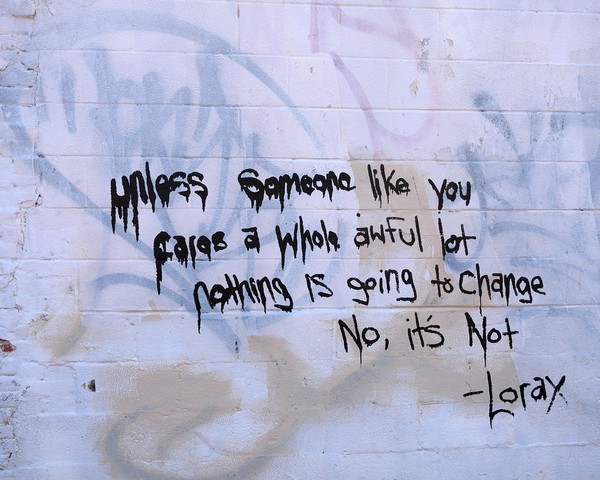 unless someone like you
cares a whole awful lot
nothing is going to change
No, it's Not
-Loray